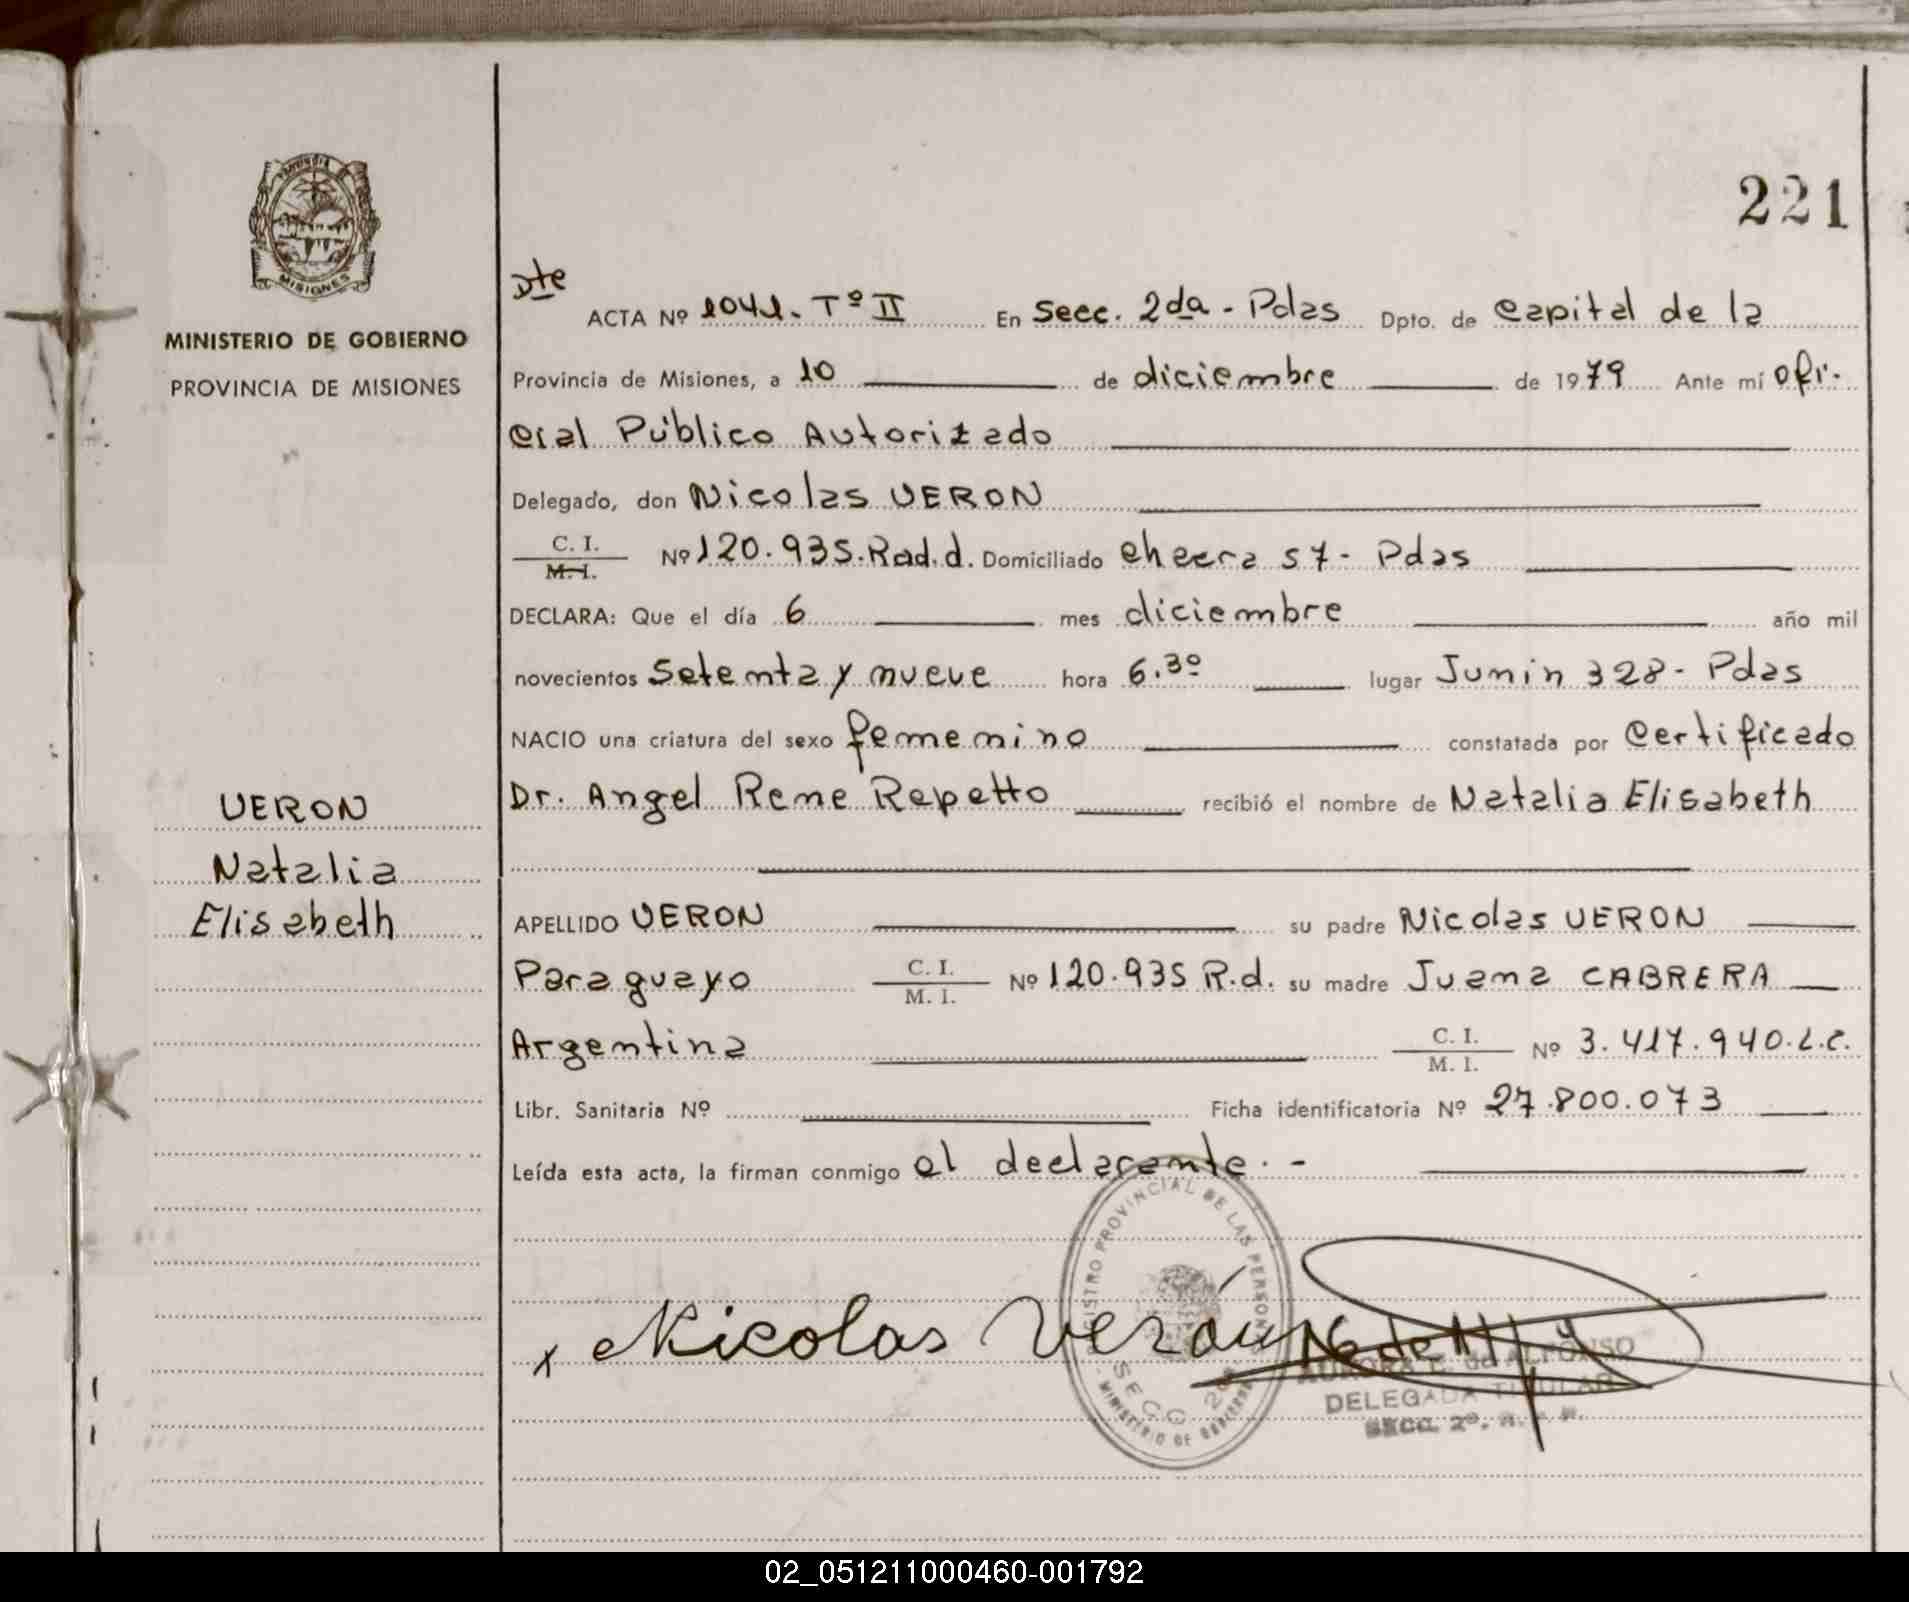 PROVINCIA
MISIONES
MINISTERIO DE GOBIERNO
PROVINCIA DE MISIONES
VERON
Natalia
Elisabeth
221
Dte
ACTA Nº 1041. Tº II En Secc. 2da - Pdas Dpto. de Capital de la
Provincia de Misiones, a 10 de diciembre de 1979 Ante mí Ofi-
cial Público Autorizado
Delegado, don Nicolas VERON
C. I.
M. I. Nº 120.935.Rad.d. Domiciliado chacra 57 - Pdas
DECLARA: Que el día 6 mes diciembre año mil
novecientos Setenta y nueve hora 6.30 lugar Junin 328 - Pdas
NACIO una criatura del sexo femenino constatada por Certificado
Dr. Angel Rene Repetto recibió el nombre de Natalia Elisabeth
APELLIDO VERON su padre Nicolas VERON
Paraguayo C. I.
M. I. Nº 120.935 R.d. su madre Juana CABRERA
Argentina C. I.
M. I. Nº 3.417.940.L.C.
Libr. Sanitaria Nº Ficha identificatoria Nº 27.800.073
Leída esta acta, la firman conmigo el declarante. -
REGISTRO PROVINCIAL DE LAS PERSONAS
SECC 2da
MINISTERIO DE GOBIERNO
x Nicolas Verón
AURORA de ALFONSO
DELEGADA TITULAR
SECC. 2º.
02_051211000460-001792